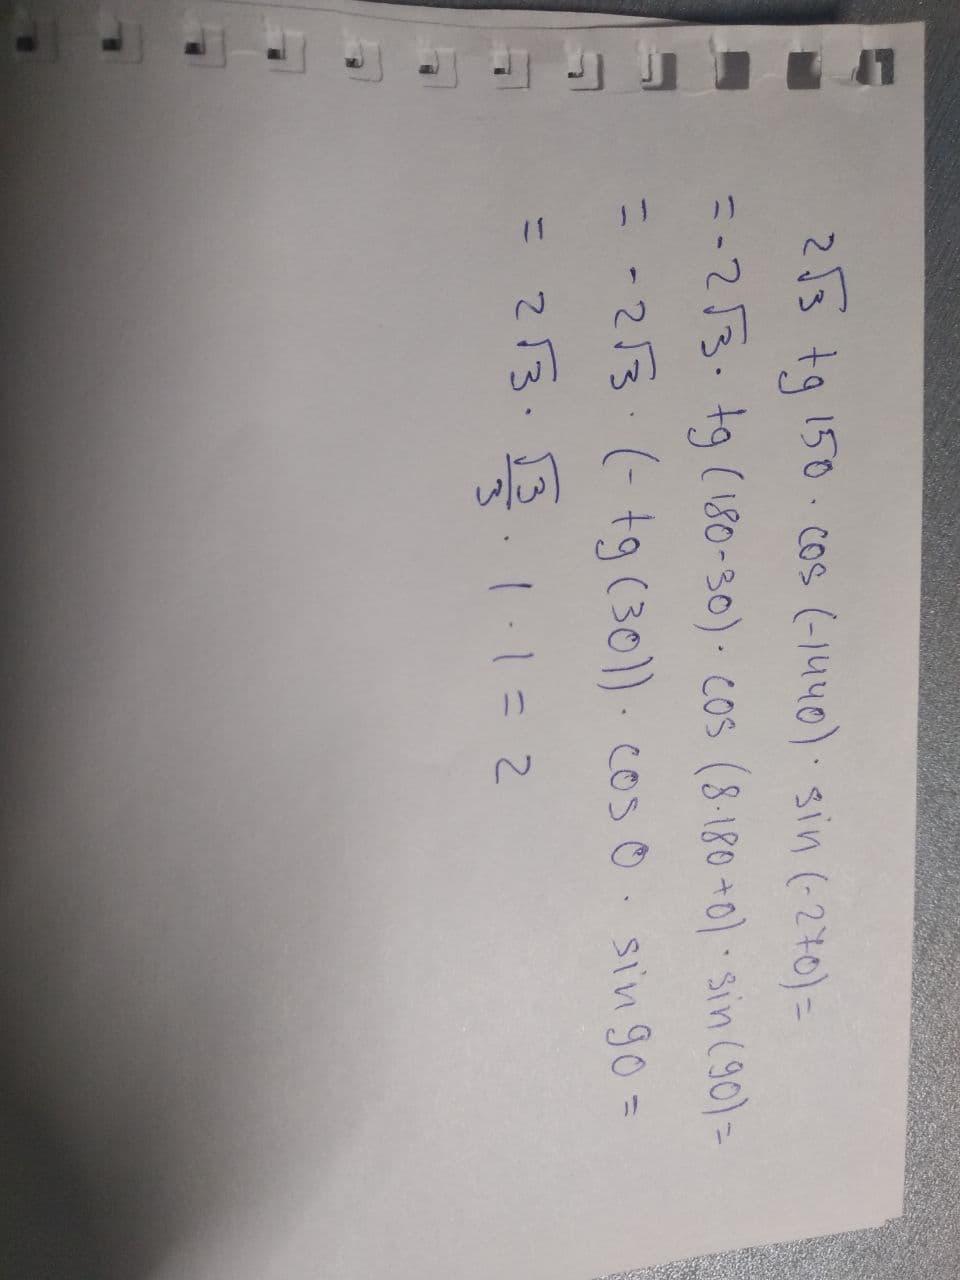 2√3 tg 150 · cos (-1440) · sin (-270) =
= -2√3 · tg (180-30) · cos (8·180+0) · sin (90) =
= -2√3 · (- tg (30)) · cos 0 · sin 90 =
= 2√3 · √3/3 · 1 · 1 = 2